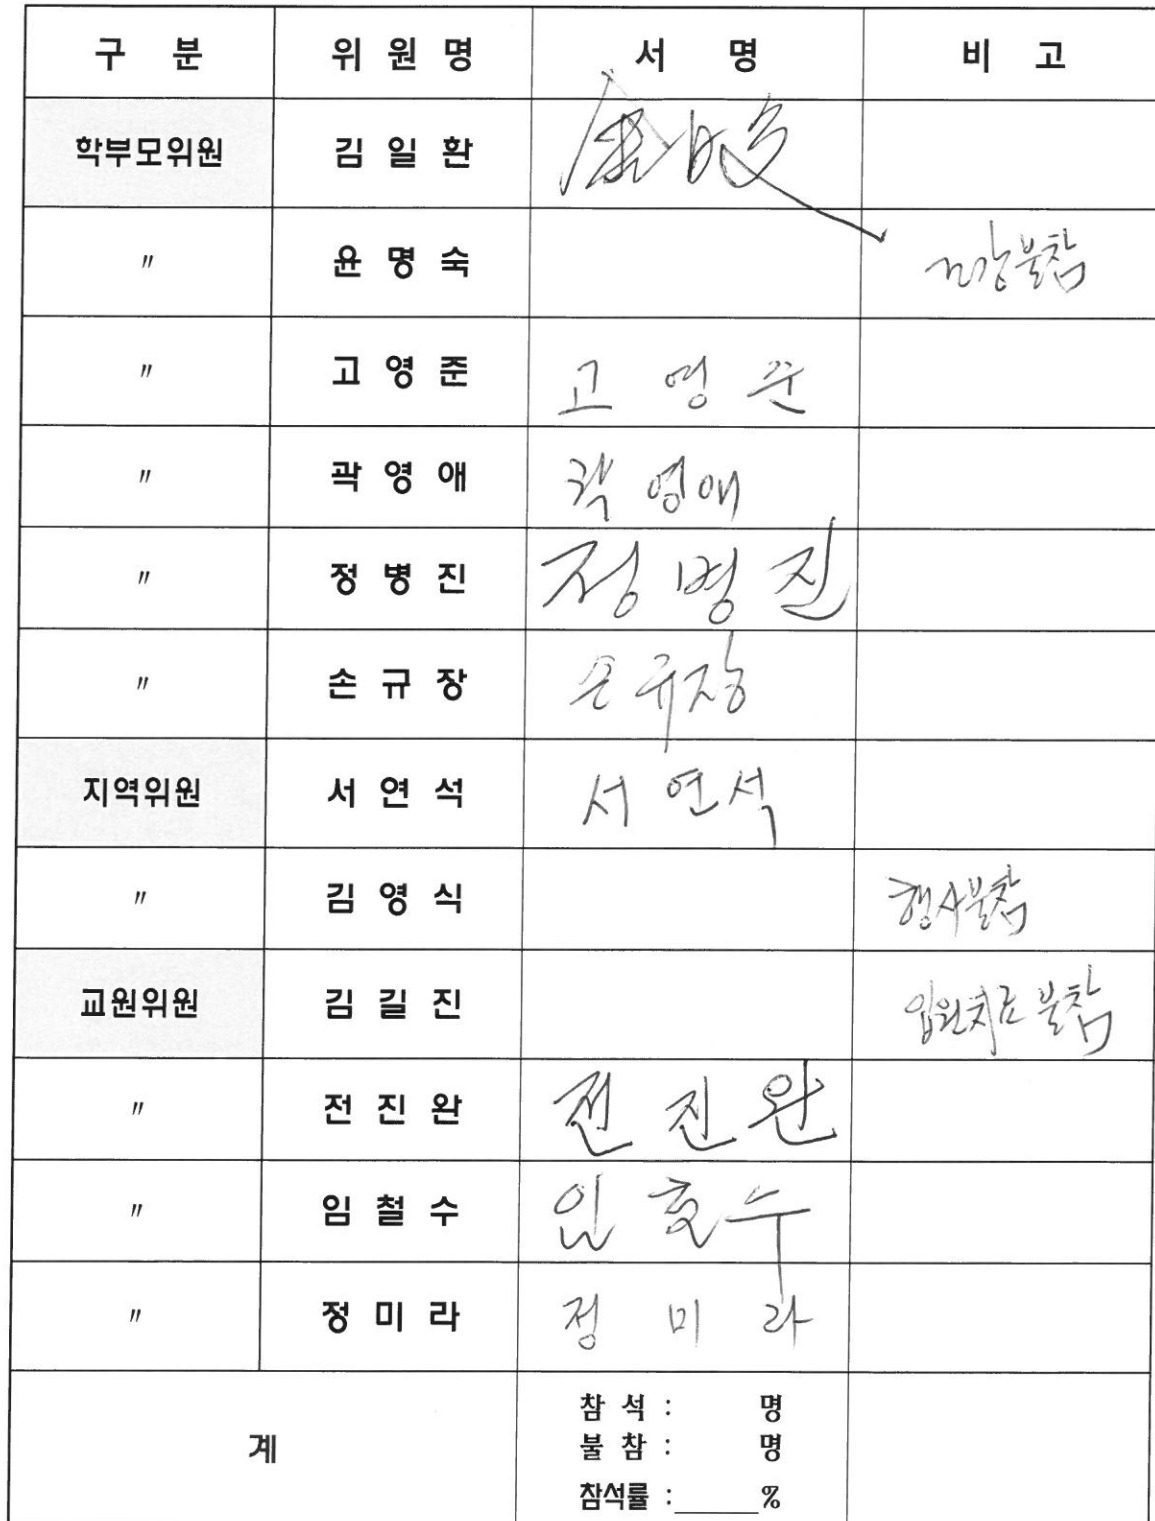 구 분 위 원 명 서 명 비 고
학부모위원 김 일 환
〃 윤 명 숙 불참
〃 고 영 준 고 영 준
〃 곽 영 애 곽 영 애
〃 정 병 진 정 병 진
〃 손 규 장 손 규 장
지역위원 서 연 석 서 연 석
〃 김 영 식 행사불참
교원위원 김 길 진 입원치료 불참
〃 전 진 완 전 진 완
〃 임 철 수
〃 정 미 라 정 미 라
계
참 석 : 명
불 참 : 명
참석률 : %